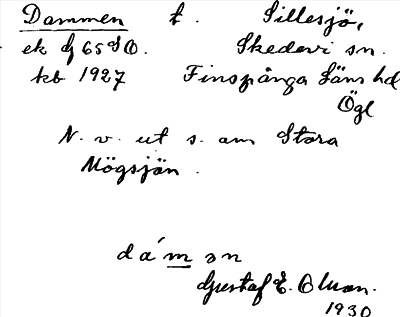 Dammen t. Sillesjö,
ek bf 65 SO. Skedevi sn.
kb 1927 Finspånga läns hd
Ögl
N. v. ut s. om Stora
Mögsjön.
dámən
Gustaf E. Olsson.
1930